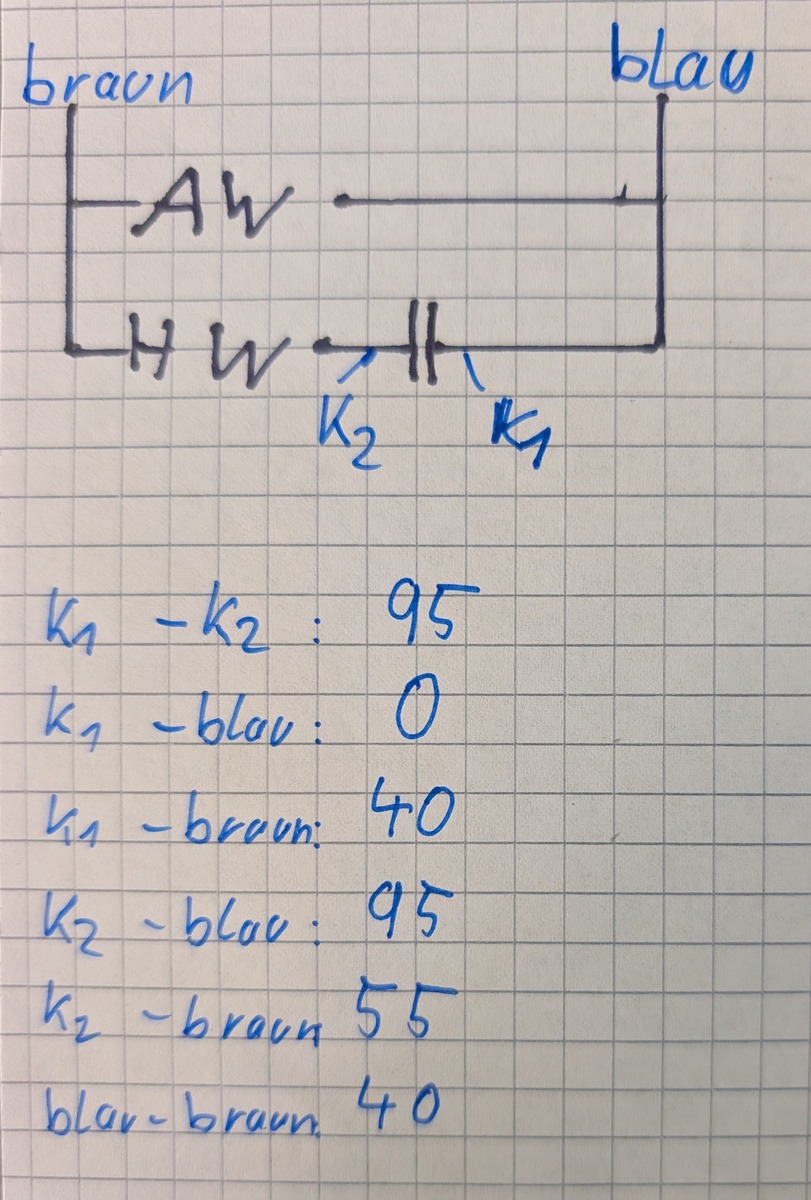 braun blau
AW
HW
K2 K1
K1 - K2 : 95
K1 - blau : 0
K1 - braun: 40
K2 - blau : 95
K2 - braun 55
blau - braun. 40